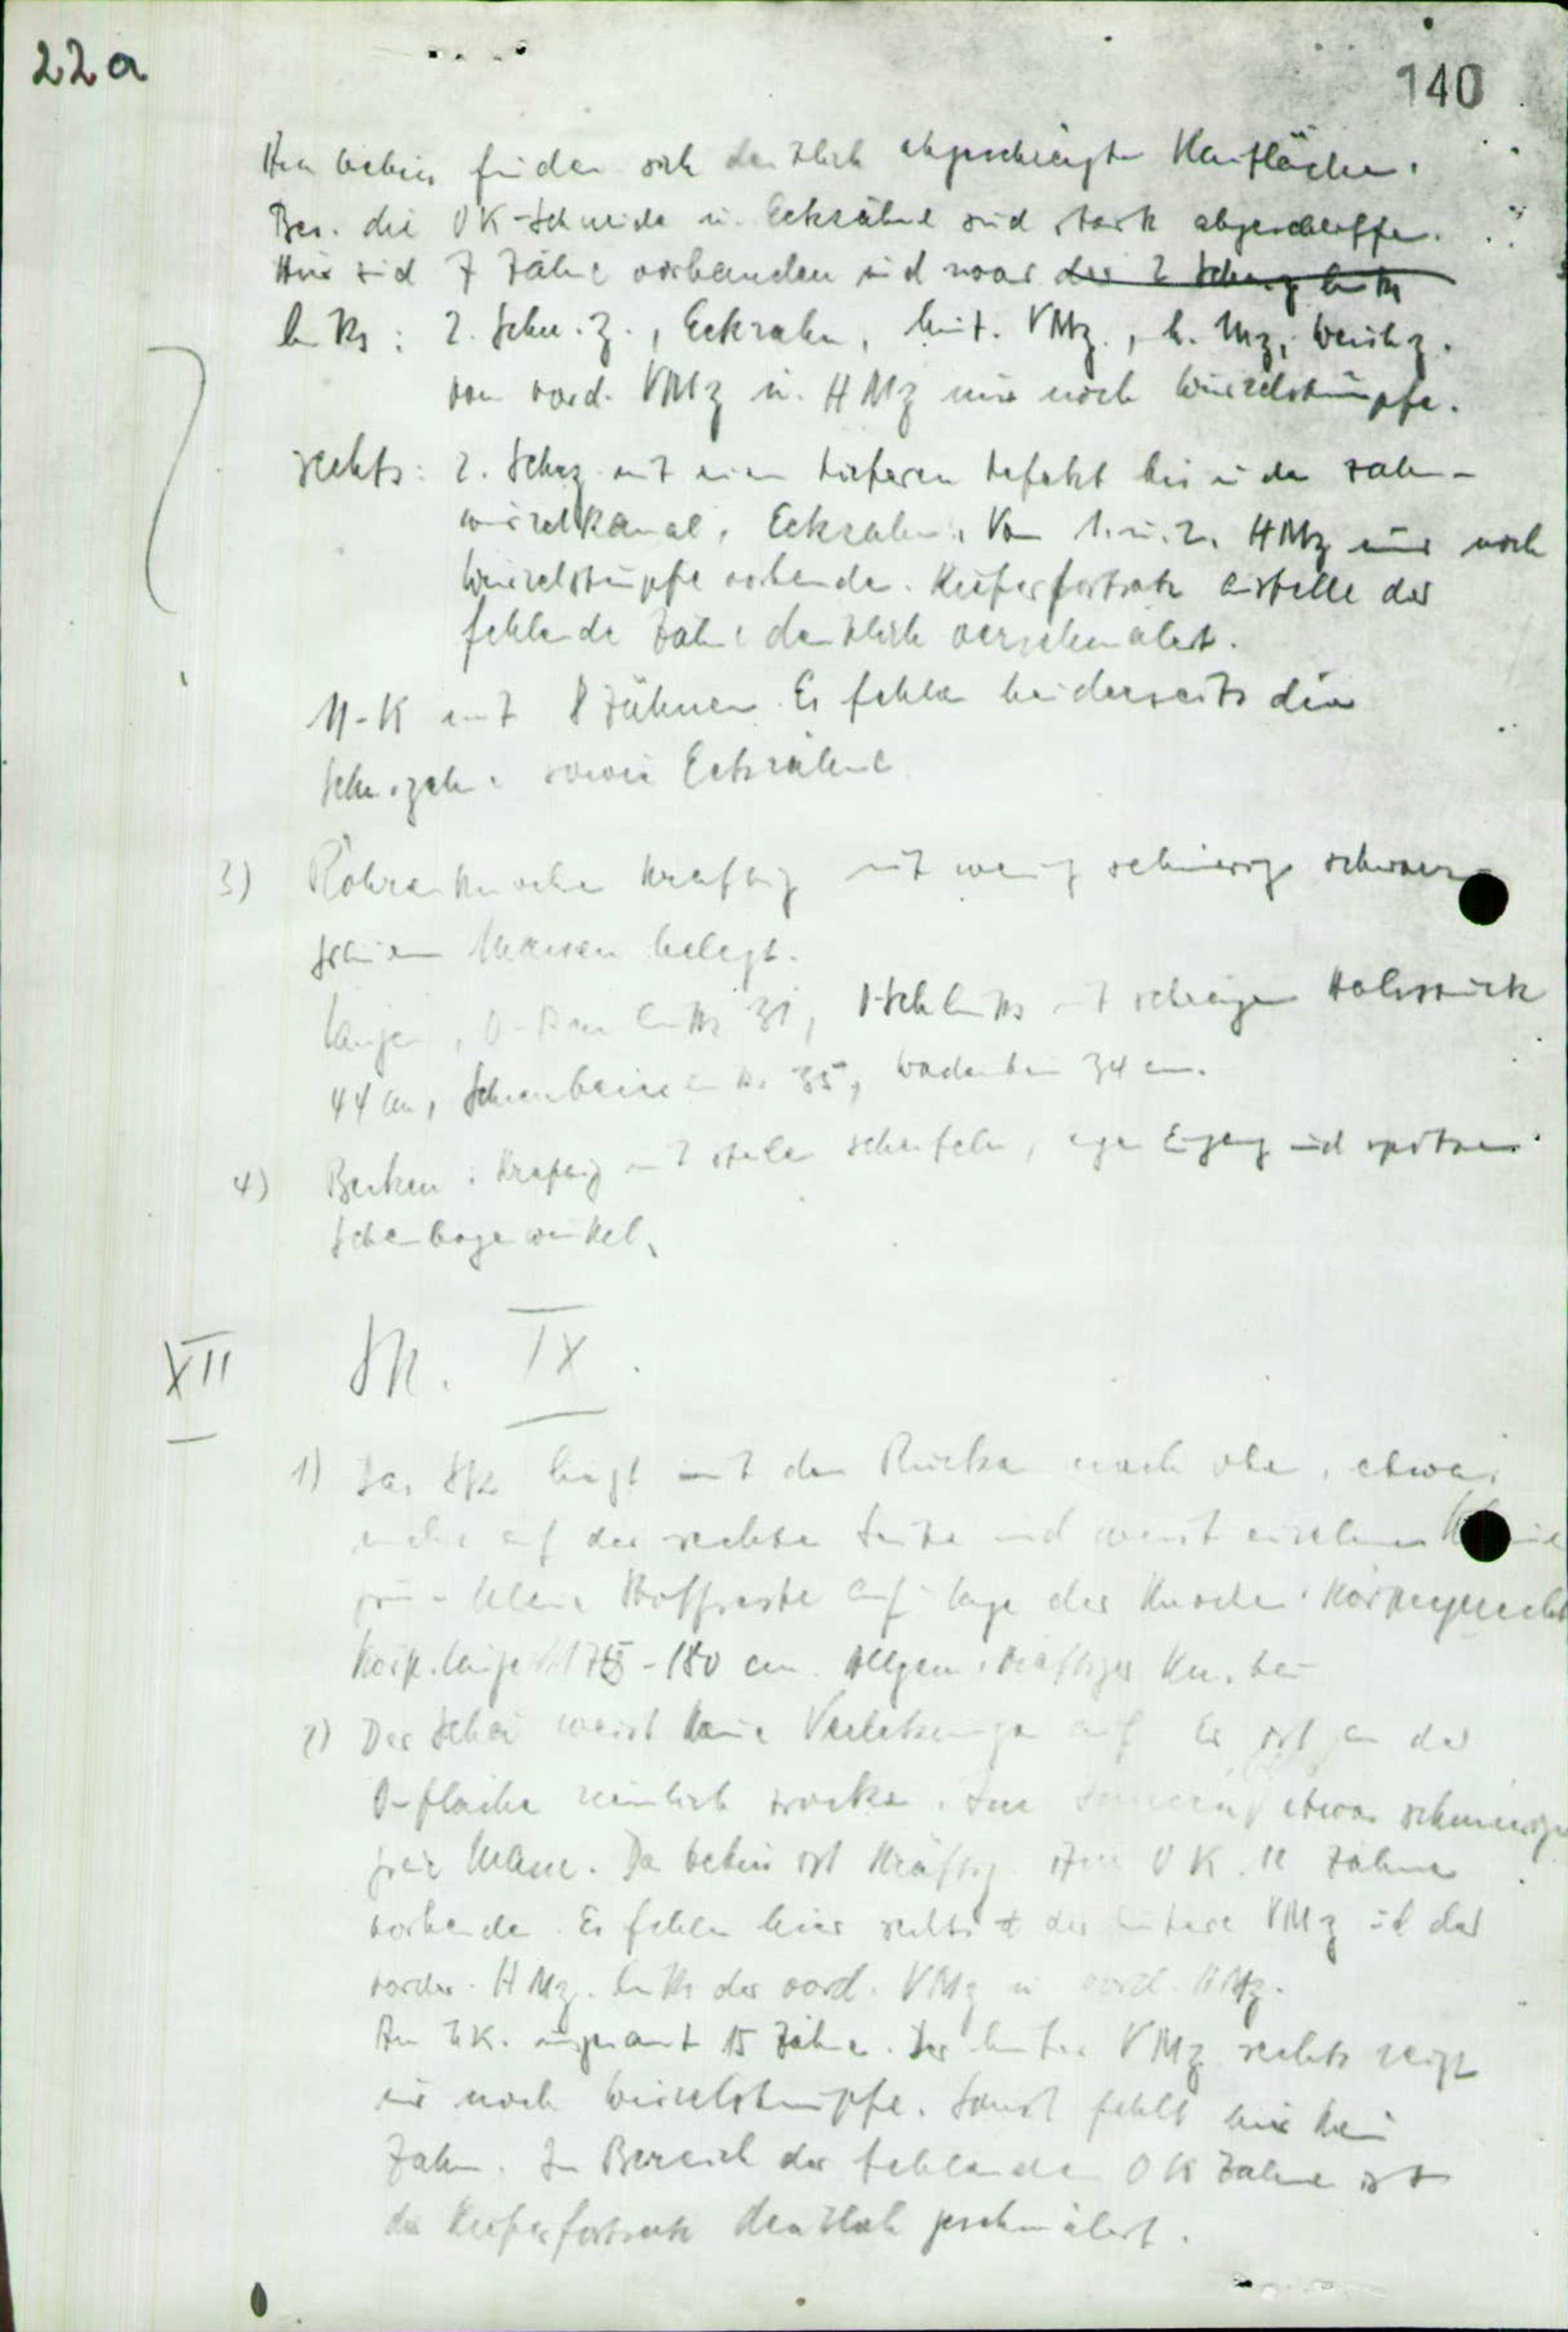 22a
140
finden sich deutlich abgeschrägte Kauflächen.
Bes. die OK-Schneide u. Eckzähne sind stark abgeschliffen.
Hier sind 7 Zähne vorhanden und zwar der 2 links
links: 2. Schn.z., Eckzahn, hint. VMz., h. Mz, Weishz.
von vord. VMz u. HMz nur noch Wurzelstümpfe.
rechts: 2. Schnz mit einem tieferen Defekt bis in den Zahn-
wurzelkanal, Eckzahn. Von 1. u. 2. HMz nur noch
Wurzelstümpfe vorhanden. Kieferfortsatz anstelle der
fehlenden Zähne deutlich verschmälert.
U-K mit 8 Zähnen. Es fehlen beiderseits die
Schn.zähne sowie Eckzähne
3) Röhrenknochen kräftig mit wenig schmierig schwarz
grauen Massen belegt.
Längen, O-Arm links 31, O-Sch links mit schrägem Halsstück
44 cm, Schienbein links 35, Wadenbein 34 cm.
4) Becken: Kräftig mit steilen Schaufeln, engen Eingang und spitzem
Schambogenwinkel.
XII Sk. IX.
1) Das Sk liegt mit dem Rücken nach oben, etwas
mehr auf der rechten Seite und weist einzelne
kleine Stoffreste auf. Lage der Knochen körpergerecht
Körp.länge 175-180 cm. Allgem. kräftiger Kn.bau
2) Der Schä weist keine Verletzungen auf. Er ist an der
O-fläche ziemlich trocken. Im Inneren etwas schmierige
graue Masse. Das Gebiß ist kräftig. Im OK 12 Zähne
vorhanden. Es fehlen hier rechts der hintere VMz und der
vordere HMz. links der vord. VMz u vord. HMz.
Im UK. insgesamt 15 Zähne. Der hintere VMz rechts zeigt
nur noch Wurzelstümpfe. Sonst fehlt hier kein
Zahn. Im Bereich der fehlenden OK Zähne ist
der Kieferfortsatz deutlich geschmälert.